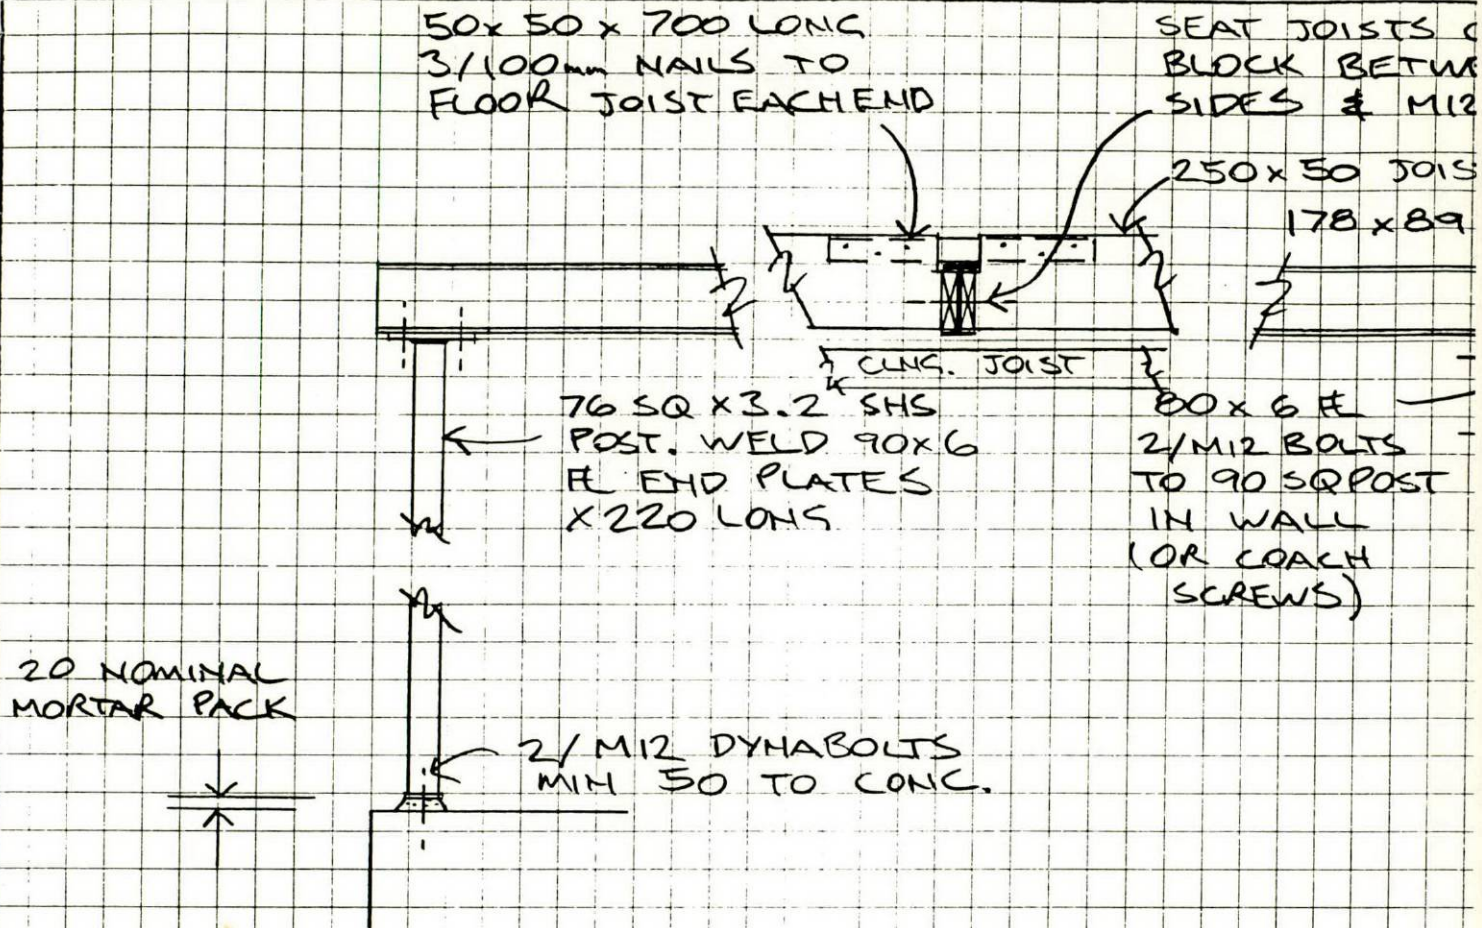 50 x 50 x 700 LONG
3/100mm NAILS TO
FLOOR JOIST EACH END
SEAT JOISTS
BLOCK BETWE
SIDES & M12
250 x 50 JOIS
178 x 89
CLNG. JOIST
76 SQ X 3.2 SHS
POST. WELD 90X6
FL END PLATES
X 220 LONG
80 x 6 FL
2/M12 BOLTS
TO 90 SQ POST
IN WALL
(OR COACH
SCREWS)
20 NOMINAL
MORTAR PACK
2/M12 DYNABOLTS
MIN 50 TO CONC.